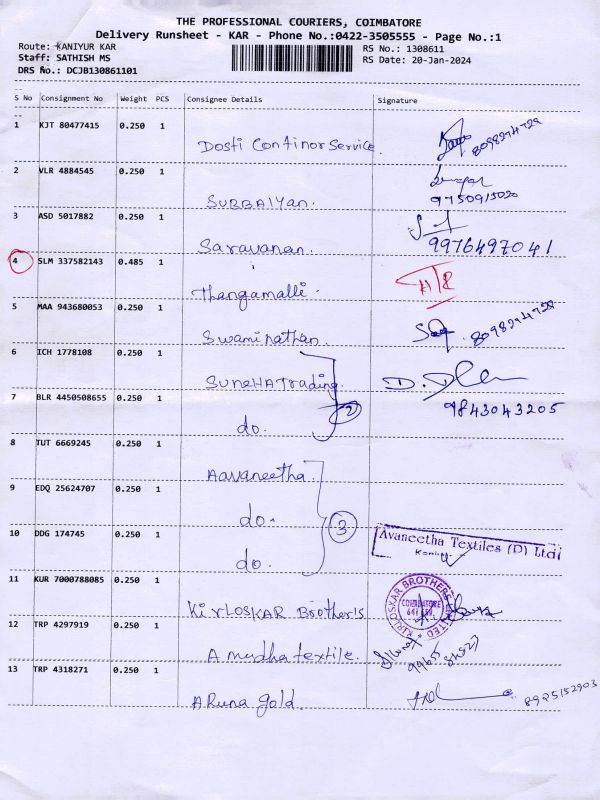 THE PROFESSIONAL COURIERS, COIMBATORE
Delivery Runsheet - KAR - Phone No.:0422-3505555 - Page No.:1
Route: KANIYUR KAR
RS No.: 1308611
Staff: SATHISH MS
RS Date: 20-Jan-2024
DRS No.: DCJB130861101
S No Consignment No Weight PCS Consignee Details Signature
1 KJT 80477415 0.250 1 Dosti Continor Service. 8098274729
2 VLR 4884545 0.250 1 SURBAIYan. 9750915020
3 ASD 5017882 0.250 1 Saravanan. 9976497041
4 SLM 337582143 0.485 1 Thangamalli.
5 MAA 943680053 0.250 1 Swaminathan. 8098274729
6 ICH 1778108 0.250 1 SUNEHA Trading.
7 BLR 4450508655 0.250 1 do. 2 9843043205
8 TUT 6669245 0.250 1 Aavaneetha.
9 EDQ 25624707 0.250 1 do. 3
10 DDG 174745 0.250 1 do. Avaneetha Textiles (D) Ltd
11 KUR 7000788085 0.250 1 KIRLOSKAR Brother's KIRLOSKAR BROTHERS LIMITED COIMBATORE
12 TRP 4297919 0.250 1 Amudha textile.
13 TRP 4318271 0.250 1 ARuna gold. 8925152903